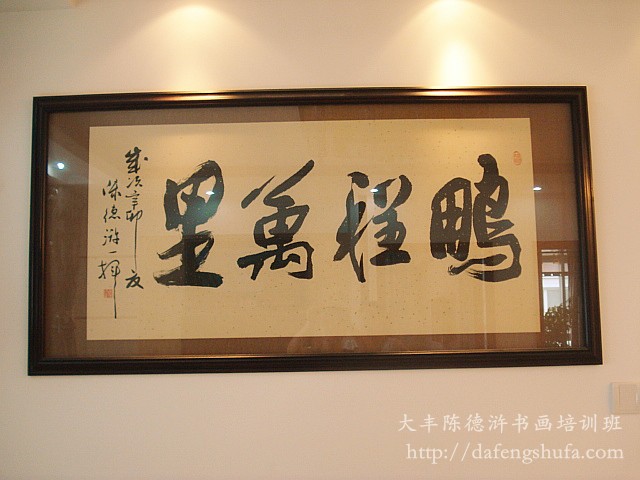 鵬程萬里
歲次辛卯夏
陈德浒一揮
大丰陈德浒书画培训班
http://dafengshufa.com